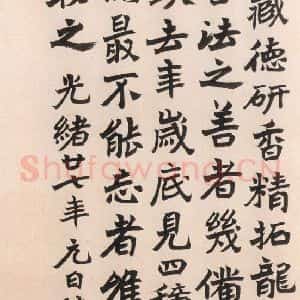 藏德研香精拓龍
法之善者幾備
去年歲底見四種
最不能忘者維
之 光緒廿七年元日
Shufawang.CN